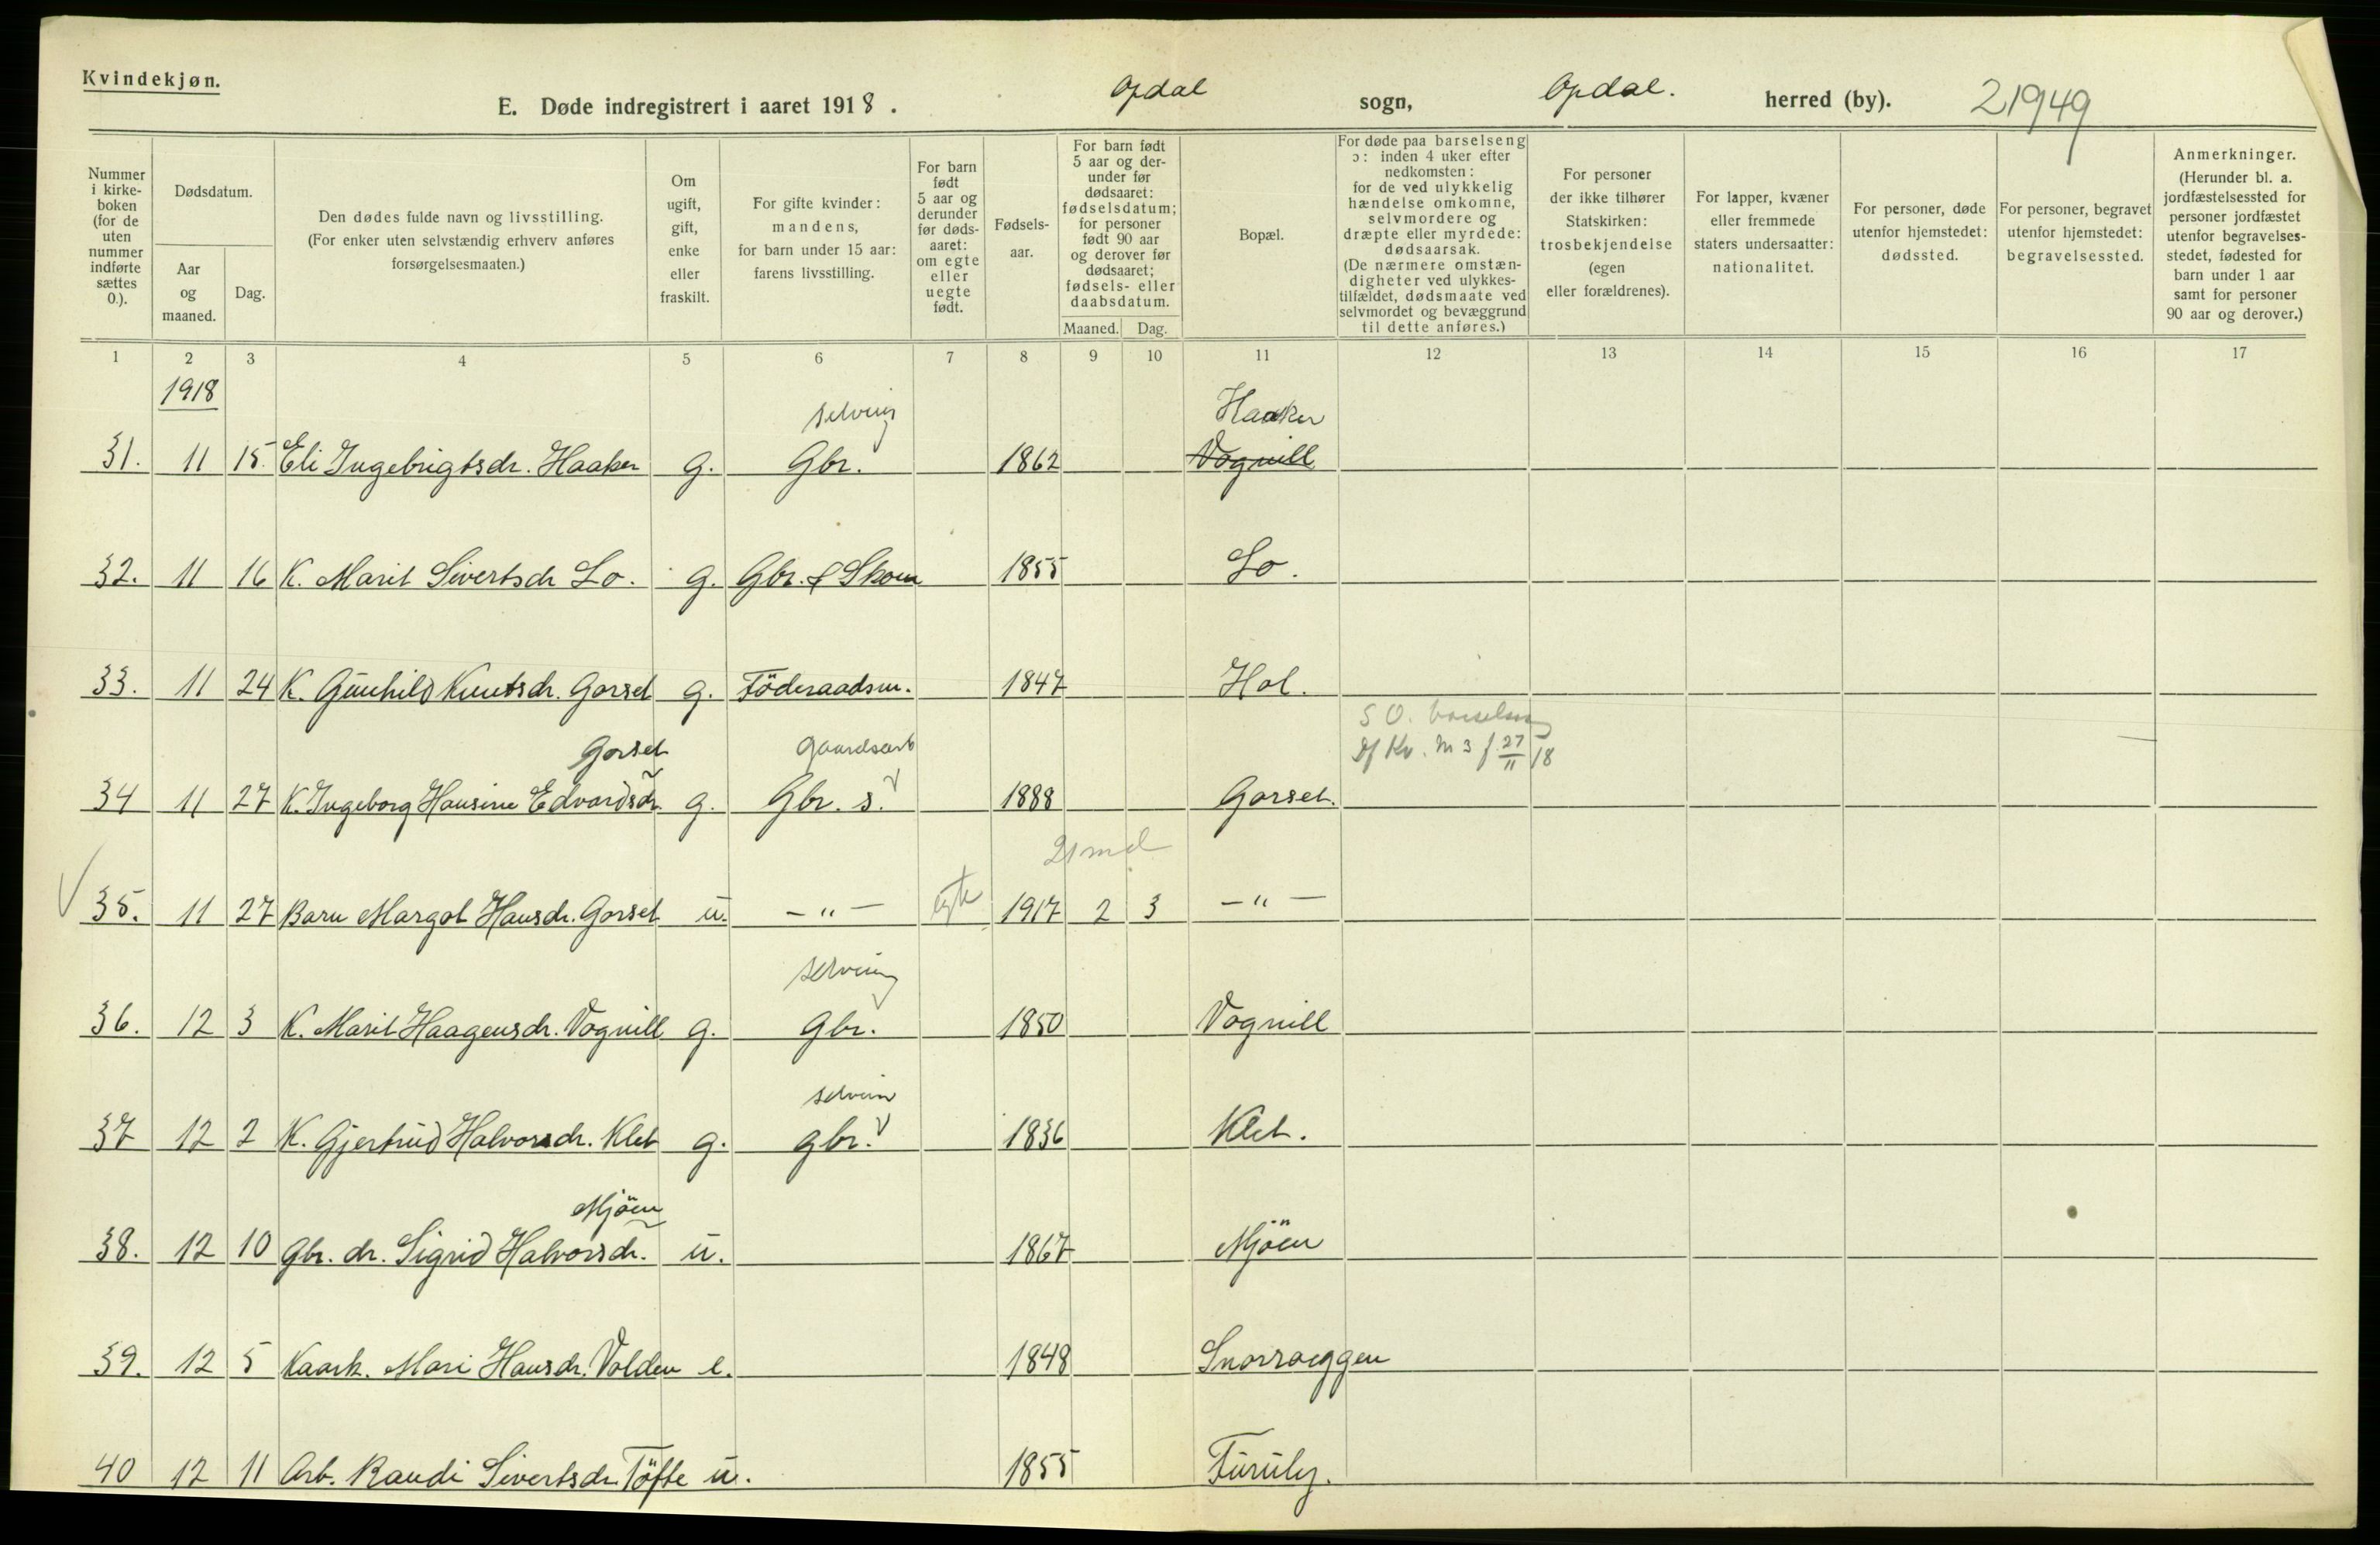 Kvindekjøn.
E. Døde indregistrert i aaret 1918. Opdal sogn, Opdal. herred (by). 21949
Nummer i kirke- boken (for de uten nummer indførte sættes 0.).
Dødsdatum.
Aar og maaned.
Dag.
Den dødes fulde navn og livsstilling.
(For enker uten selvstændig erhverv anføres forsørgelsesmaaten.)
Om ugift, gift, enke eller fraskilt.
For gifte kvinder: mandens, for barn under 15 aar: farens livsstilling.
For barn født 5 aar og derunder før døds- aaret: om egte eller uegte født.
Fødsels- aar.
For barn født 5 aar og der- under før dødsaaret: fødselsdatum; for personer født 90 aar og derover før dødsaaret; fødsels- eller daabsdatum.
Maaned. Dag.
Bopæl.
For døde paa barselseng ɔ: inden 4 uker efter nedkomsten: for de ved ulykkelig hændelse omkomne, selvmordere og dræpte eller myrdede: dødsaarsak. (De nærmere omstæn- digheter ved ulykkes- tilfældet, dødsmaate ved selvmordet og bevæggrund til dette anføres.)
For personer der ikke tilhører Statskirken: trosbekjendelse (egen eller forældrenes).
For lapper, kvæner eller fremmede staters undersaatter: nationalitet.
For personer, døde utenfor hjemstedet: dødssted.
For personer, begravet utenfor hjemstedet: begravelsessted.
Anmerkninger. (Herunder bl. a. jordfæstelsessted for personer jordfæstet utenfor begravelses- stedet, fødested for barn under 1 aar samt for personer 90 aar og derover.)
1 2 3 4 5 6 7 8 9 10 11 12 13 14 15 16 17
1918
selveier Haaker
31. 11 15. Eli Ingebrigtsdr. Haaker g. Gbr. 1862 Vognill
32. 11 16 K. Marit Sivertsdr Lo. g. Gbr. & Skom 1855 Lo.
33. 11 24 K. Gunhild Knutsdr. Gorset g. Föderaadsm. 1847 Hol.
S O. barselseng
Gorset gaardsarb df Kv. M 3 f 27/11 18
34 11 27 K. Ingeborg Hansine Edvardsdr. g. Gbr. s. 1888 Gorset.
21 md
35. 11 27 Barn Margot Hansdr. Gorset u. -"- egte 1917 2 3 -"-
selveier
36. 12 3 K. Marit Haagensdr. Vognill g. Gbr. 1850 Vognill
selveier
37 12 2 K. Gjertrud Halvorsdr. Klet g. gbr. 1836 Klet.
Mjöen
38. 12 10 Gbr. dr. Sigrid Halvorsdr. u. 1867 Mjöen
39. 12 5 Kaark. Mari Hansdr. Volden e. 1848 Snorroeggen
40 12 11 Arb. Randi Sivertsdr. Töfte u. 1855 Furuly.